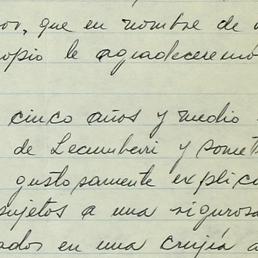 que en nombre de
le agradeceremo
cinco años y medio
de Lecumberri y somet
gustosamente explic
sujetos a una rigurosa
ados en una crujía a